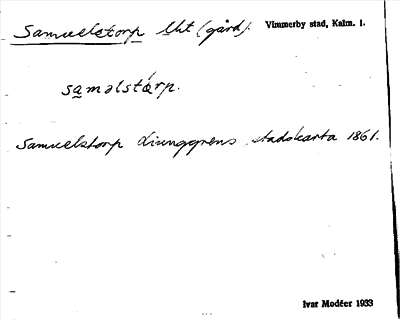 Samuelstorp Lht (gård). Vimmerby stad, Kalm. l.
samǝlstárp.
Samuelstorp Ljunggrens stadskarta 1861.
Ivar Modéer 1933